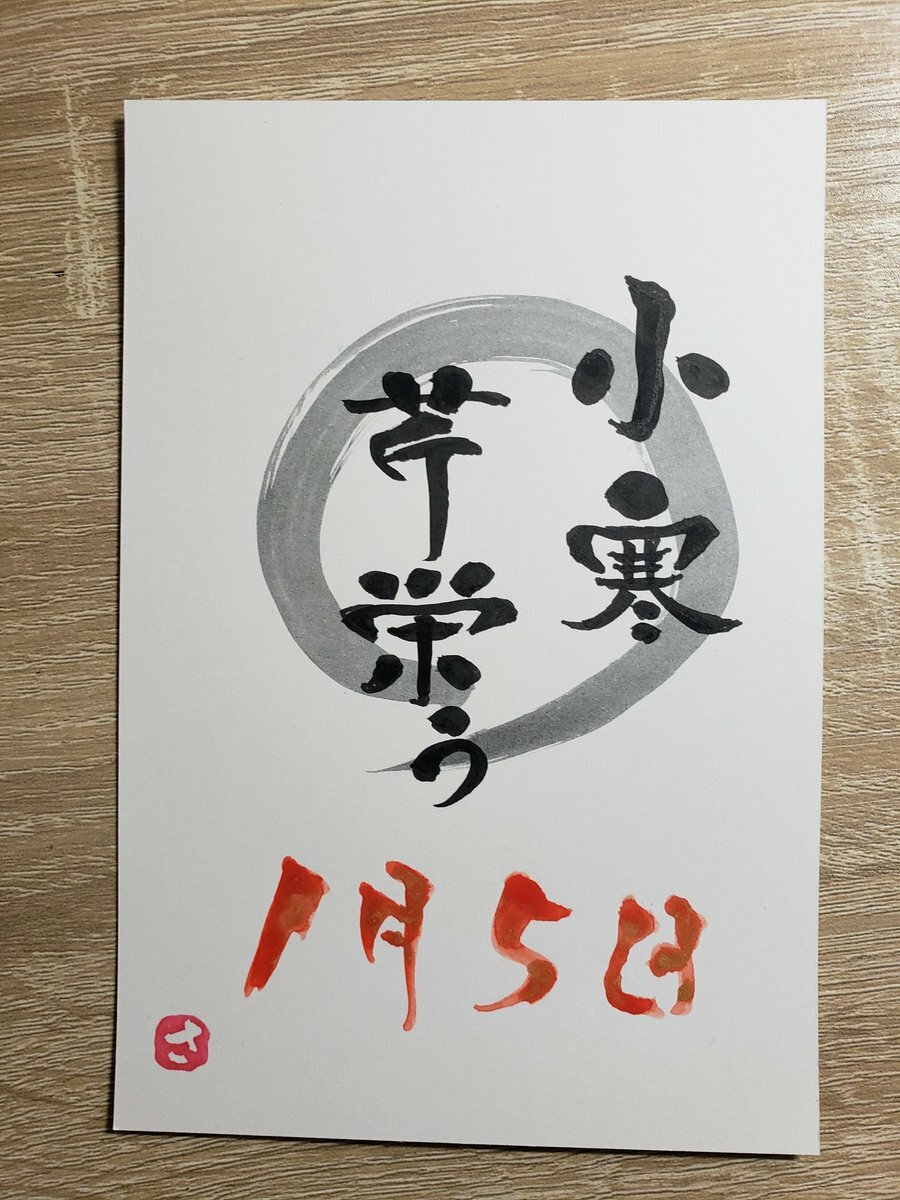 小寒
芹栄う
1月5日
さ